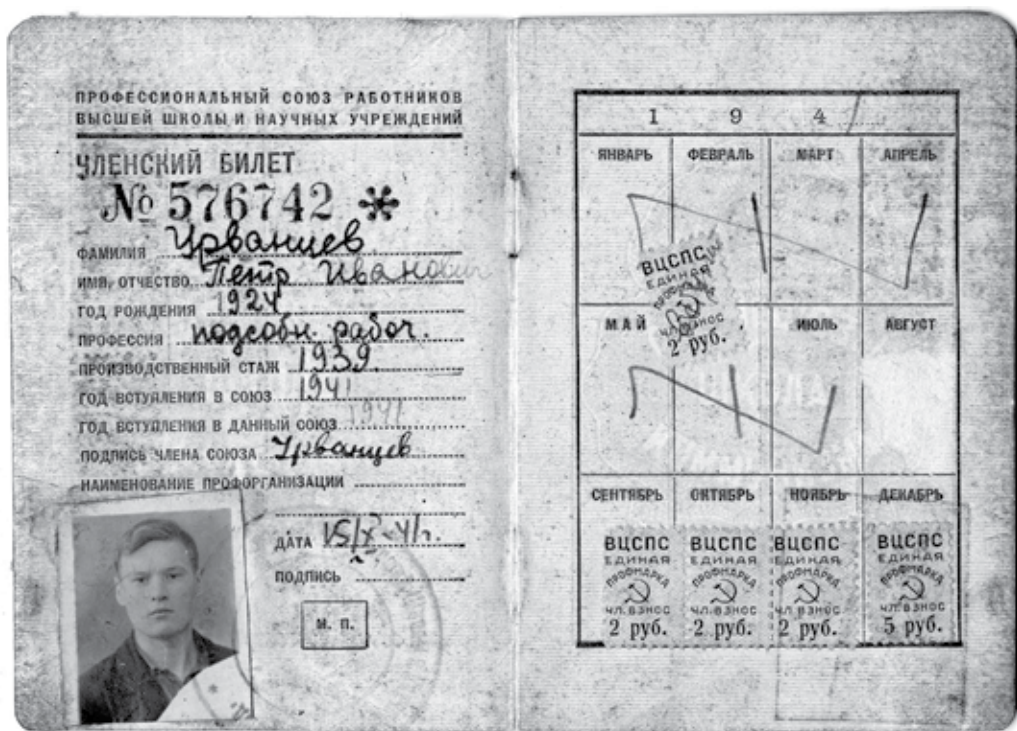 ПРОФЕССИОНАЛЬНЫЙ СОЮЗ РАБОТНИКОВ
ВЫСШЕЙ ШКОЛЫ И НАУЧНЫХ УЧРЕЖДЕНИЙ
ЧЛЕНСКИЙ БИЛЕТ
№ 576742 *
ФАМИЛИЯ Урванцев
ИМЯ, ОТЧЕСТВО Петр Иванович
ГОД РОЖДЕНИЯ 1924
ПРОФЕССИЯ подсобн. рабоч.
ПРОИЗВОДСТВЕННЫЙ СТАЖ 1939.
ГОД ВСТУПЛЕНИЯ В СОЮЗ 1941
ГОД ВСТУПЛЕНИЯ В ДАННЫЙ СОЮЗ 1941
ПОДПИСЬ ЧЛЕНА СОЮЗА Урванцев
НАИМЕНОВАНИЕ ПРОФОРГАНИЗАЦИИ
ДАТА 15/X-41г.
ПОДПИСЬ
М. П.
1 9 4
ЯНВАРЬ ФЕВРАЛЬ МАРТ АПРЕЛЬ
ВЦСПС
ЕДИНАЯ
ПРОФМАРКА
ЧЛ. ВЗНОС
2 руб.
МАЙ ИЮЛЬ АВГУСТ
СЕНТЯБРЬ ОКТЯБРЬ НОЯБРЬ ДЕКАБРЬ
ВЦСПС ВЦСПС ВЦСПС ВЦСПС
ЕДИНАЯ ЕДИНАЯ ЕДИНАЯ ЕДИНАЯ
ПРОФМАРКА ПРОФМАРКА ПРОФМАРКА ПРОФМАРКА
ЧЛ. ВЗНОС ЧЛ. ВЗНОС ЧЛ. ВЗНОС ЧЛ. ВЗНОС
2 руб. 2 руб. 2 руб. 5 руб.